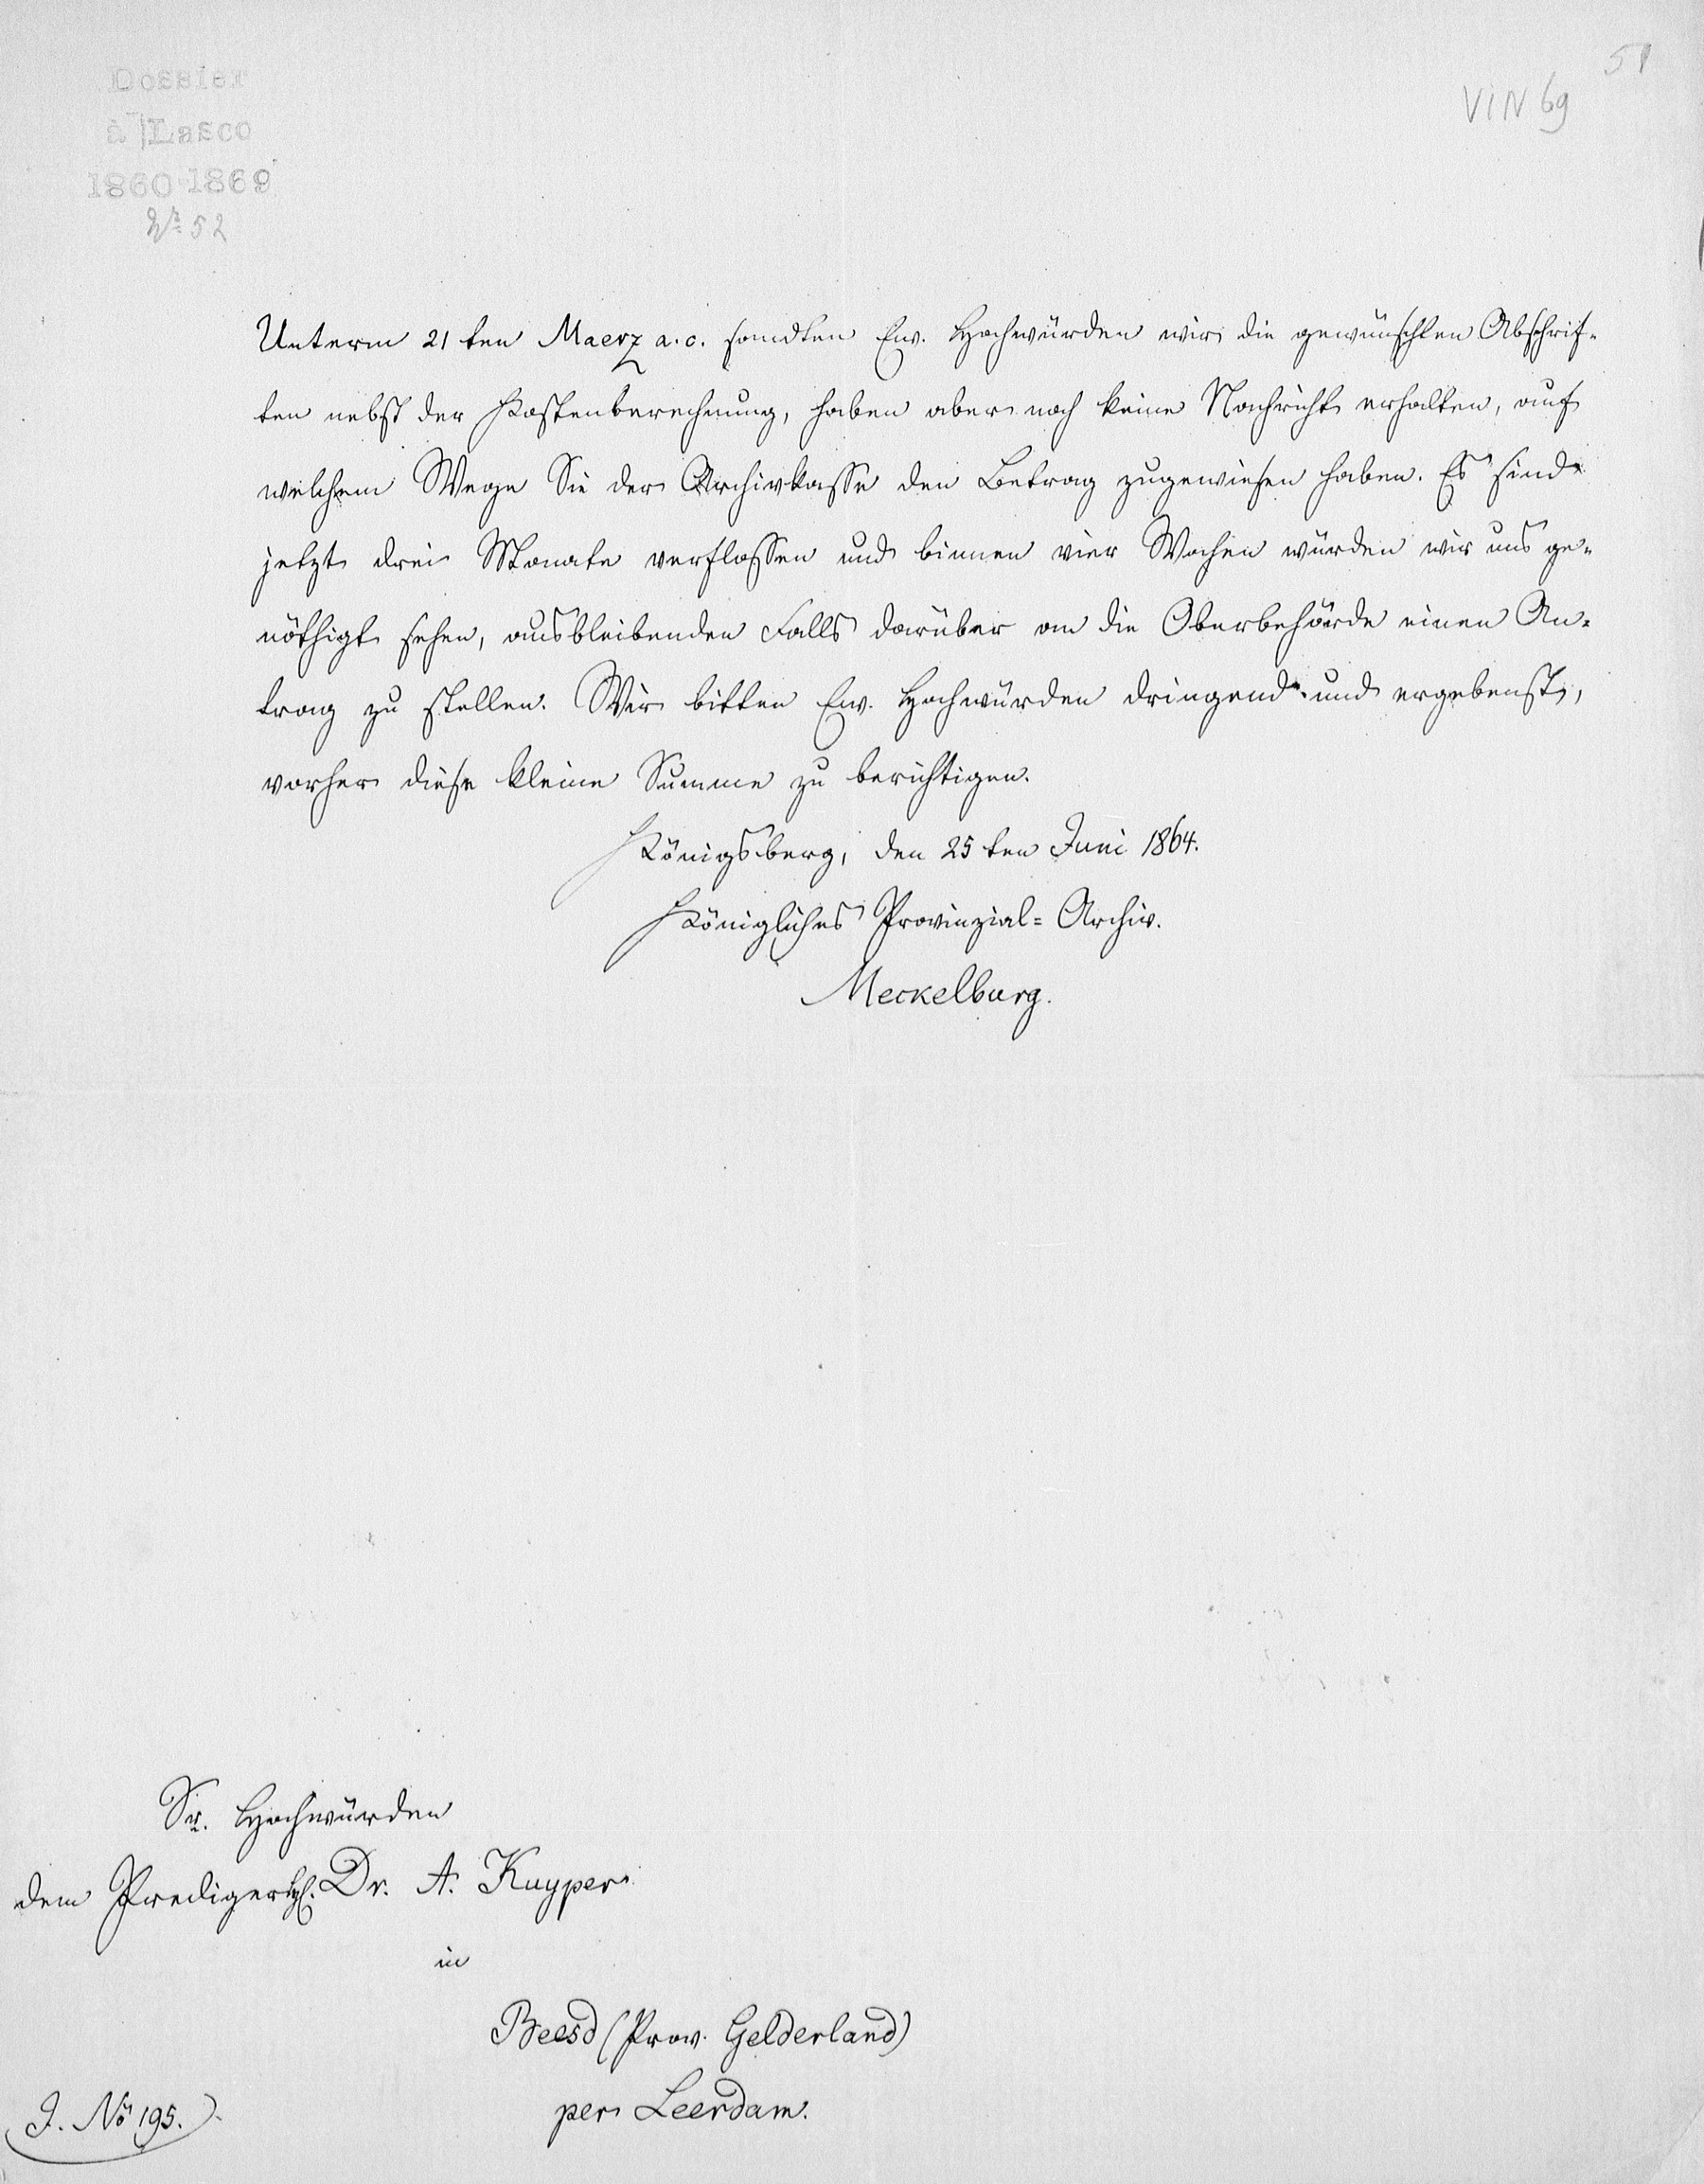 51
VIN 69
Dossier
à Lasco
1860-1869
No 52
Unterm 21ten Maerz a.c. sandten Ew. Hochwürden wir die gewünschten Abschrif-
ten nebst der Kostenberechnung, haben aber noch keine Nachricht erhalten, auf
welchem Wege Sie der Archivkasse den Betrag zugewiesen haben. Es sind
jetzt drei Monate verflossen und binnen vier Wochen würden wir uns ge-
nöthigt sehen, ausbleibenden Falls darüber an die Oberbehörde einen An-
trag zu stellen. Wir bitten Ew. Hochwürden dringend und ergebenst,
vorher diese kleine Summe zu berichtigen.
Königsberg, den 25ten Juni 1864.
Königliches Provinzial-Archiv.
Meckelburg.
Sr. Hochwürden
dem Prediger H. Dr. A. Kuyper
in
Beesd (Prov. Gelderland)
per Leerdam.
J. No 195.